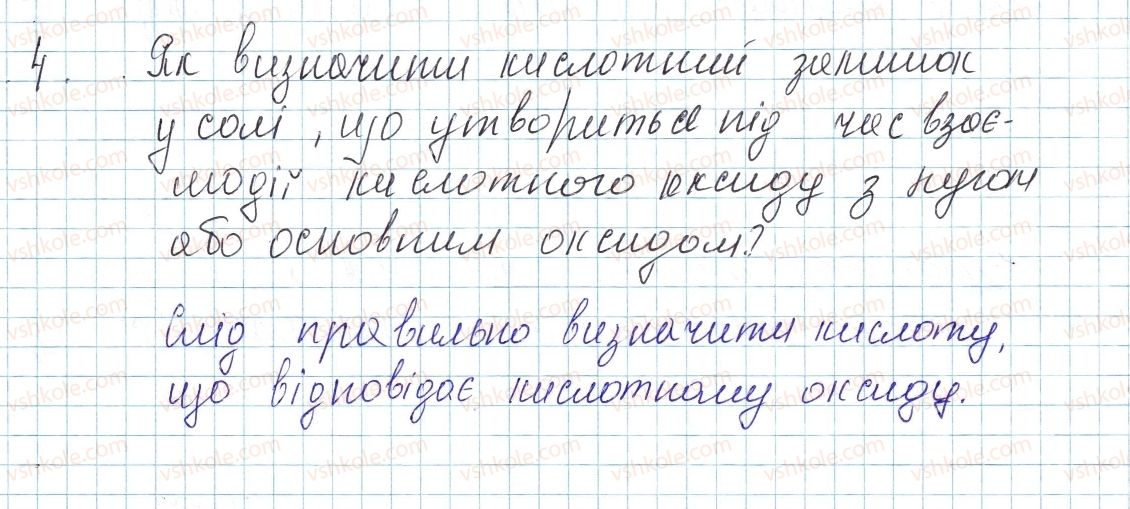 4. Як визначити кислотний залишок
у солі, що утвориться під час взає-
модії кислотного оксиду з лугом
або основним оксидом?
Слід правильно визначити кислоту,
що відповідає кислотному оксиду.